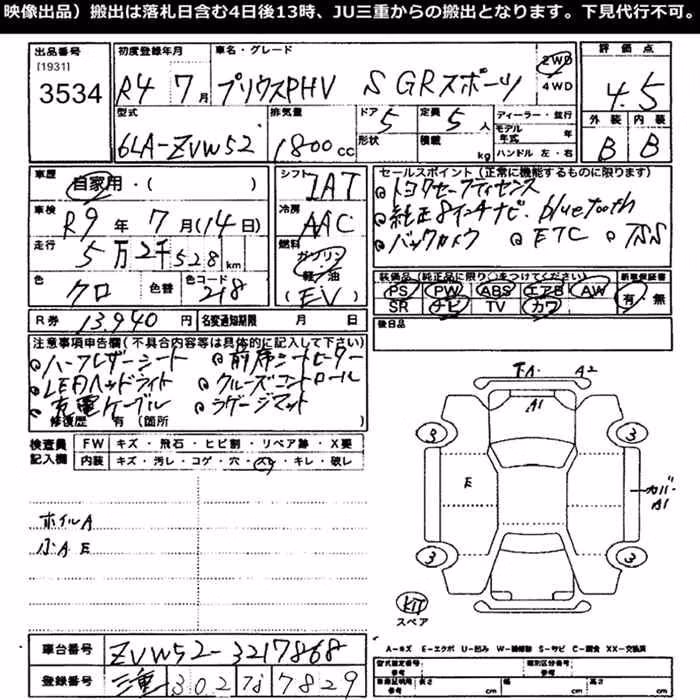 映像出品）搬出は落札日含む4日後13時、JU三重からの搬出となります。下見代行不可。
出品番号 初度登録年月 車名・グレード 評価点
[1931]
3534 R4 7月 プリウスPHV S GRスポーツ 2WD 4WD 4.5
型式 排気量 ドア 定員 ディーラー・並行 外装 内装
6LA-ZVW52 1800cc 5 5人 モデル年式 年 B B
形状 積載 kg ハンドル 左・右
車歴 自家用・( ) シフト IAT セールスポイント（正常に機能するものに限ります）
車検 R9年 7月(14日) 冷房 AAC トヨタセーフティセンス
純正8インチナビ. bluetooth
走行 5万2千528km 燃料 ガソリン 軽油 (EV) バックカメラ ETC TSS
色 クロ 色替 色コード 218 装備品（純正品に限り○をつけてください） 新車保証書
PS PW ABS エアB AW 有・無
SR ナビ TV カワ
R券 13,940円 名変通知期限 月 日 後日品
注意事項申告欄（不具合内容等は具体的に記入して下さい）
ハーフレザーシート 前席シートヒーター
LEDヘッドライト クルーズコントロール
充電ケーブル ラゲージマット
修復歴 有（箇所
検査員記入欄 FW キズ・飛石・ヒビ割・リペア跡・X要
内装 キズ・汚レ・コゲ・穴・スレ・キレ・破レ
下A. A2
A1
3 3
E カバーA1
ホイルA
小A E
3 3
Kit
スペア
A－キズ E－エクボ U－凹み W－補修跡 S－サビ C－腐食 XX－交換済
車台番号 ZVW52-3217868
型式指定番号 類別区分番号
参考 参考
登録番号 三重 302 7829
車両証明用 参考 長さ cm 幅 cm 高さ cm